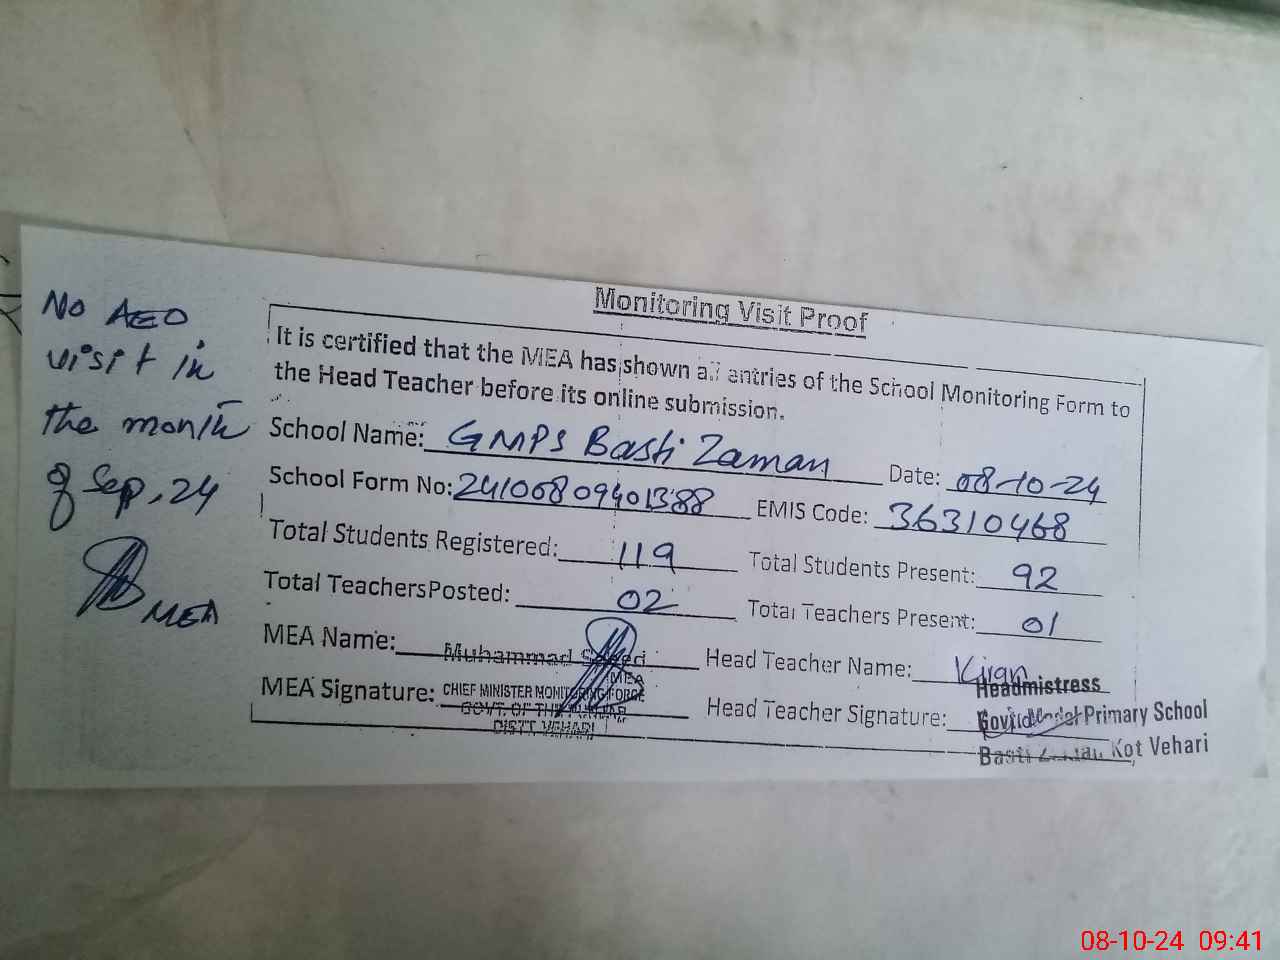 No AEO
visit in
the month
of Sep, 24
MEA
Monitoring Visit Proof
It is certified that the MEA has shown all entries of the School Monitoring Form to
the Head Teacher before its online submission.
School Name: GMPS Basti Zaman Date: 08-10-24
School Form No: 24100809401388 EMIS Code: 36310468
Total Students Registered: 119 Total Students Present: 92
Total TeachersPosted: 02 Total Teachers Present: 01
MEA Name: Muhammad Saeed Head Teacher Name: Kiran
MEA
MEA Signature: CHIEF MINISTER MONITORING FORCE Head Teacher Signature:
GOVT. OF THE PUNJAB
DISTT. VEHARI
Headmistress
Govt. Model Primary School
Basti Zaman Kot Vehari
08-10-24 09:41